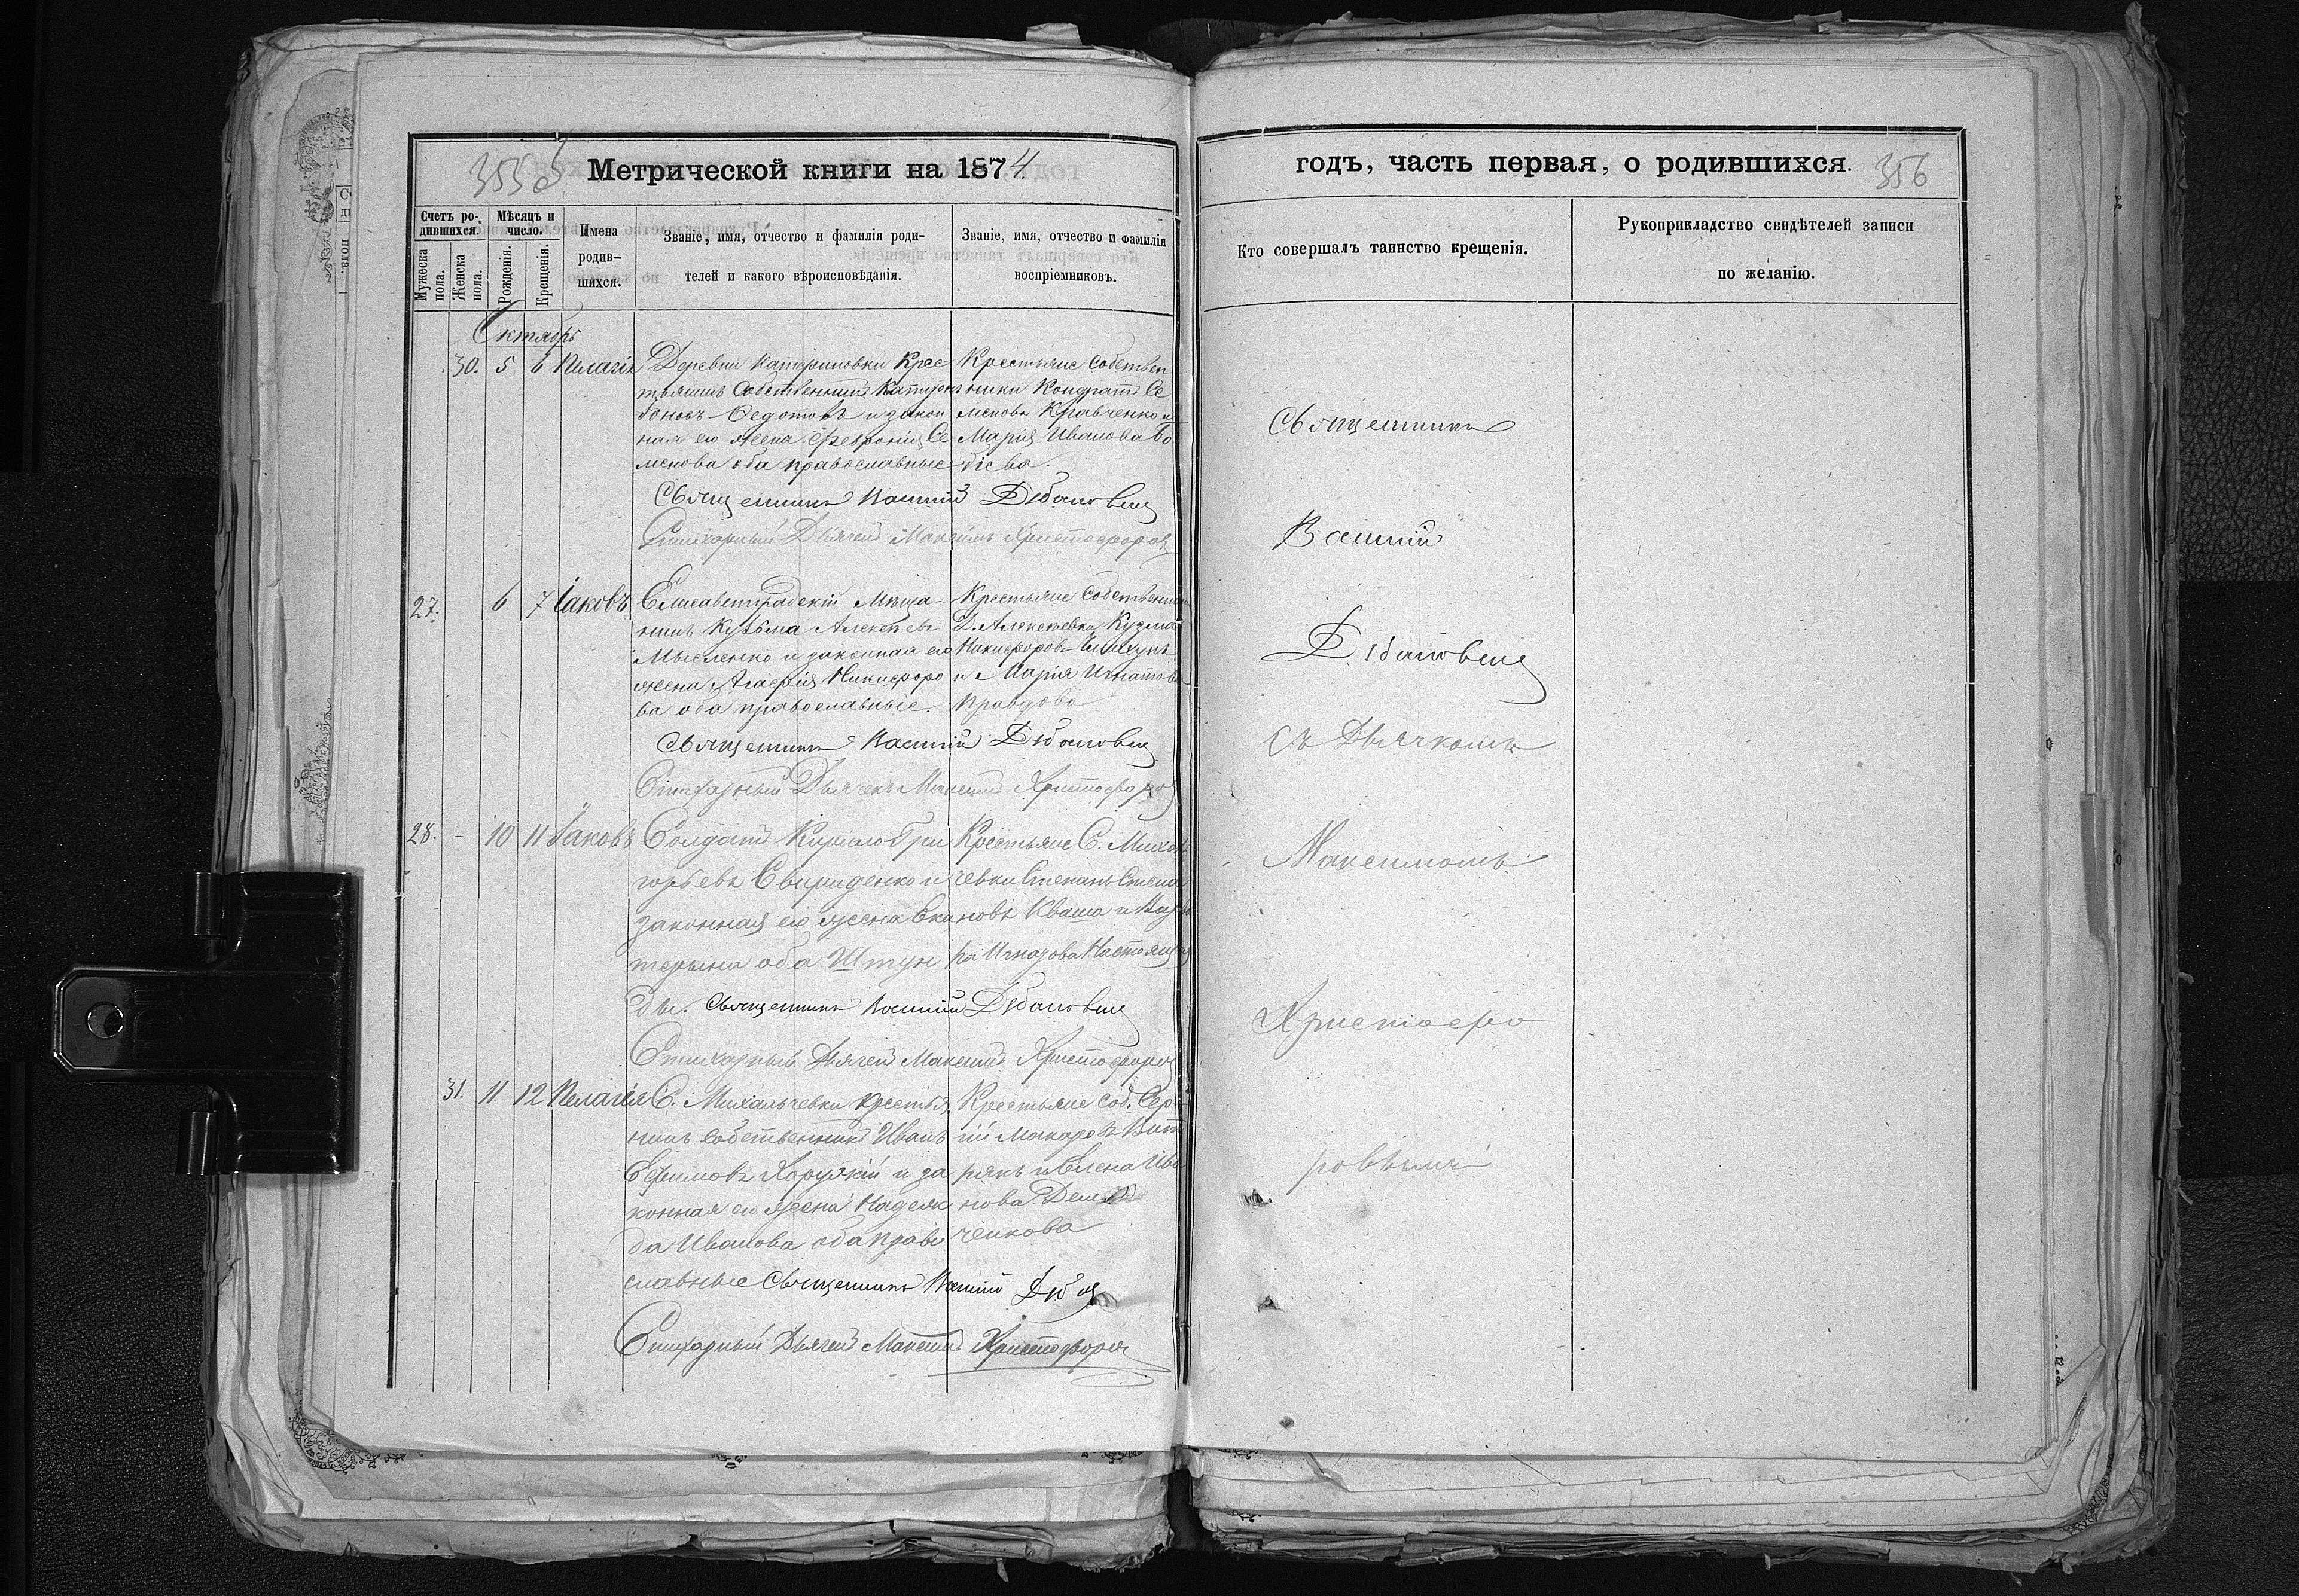 355
Метрической книги на 1874
годъ, часть первая, о родившихся.
356
Счетъ ро-
дившихся.
Мужеска пола.
Женска пола.
Мѣсяцъ и
число.
Рожденія.
Крещенія.
Имена
родив-
шихся.
Званіе, имя, отчество и фамилія роди-
телей и какого вѣроисповѣданія.
Званіе, имя, отчество и фамилія
воспріемниковъ.
Кто совершалъ таинство крещенія.
Рукоприкладство свидѣтелей записи
по желанію.
Октябрь
30. 5 6 Пелагія
Деревни Катериновки Крес-
тьянинъ Собственникъ
Федотовъ и закон
ная его жена Февронія Се
менова оба православные
Крестьяне Собствен
ники Кондратъ Се
меновъ Кравченко и
Марія Иванова Бо
біева.
Священникъ Василій
Стихарный Дьячекъ Максимъ Христофоровъ
27. 6 7 Іаковъ
Елисаветградскій Мѣща-
нинъ Кузьма Алексѣевъ
Мысленко и законная его
жена Агафія Никифоро
ва оба православные.
Крестьяне Собственники
Д. Алексѣевки Кузьма
Никифоровъ
и Марія Игнатова
Правдова
Священникъ Василій
Стихарный Дьячекъ Максимъ Христофоровъ
28. - 10 11 Іаковъ
Солдатъ Кирило Гри
горьевъ Свириденко и
законная его жена Ека
терина оба Штун
ды.
Крестьяне С. Михаль
чевки Степанъ Степа
новъ Кваша и Варва
ра Настоящая
Священникъ Василій
Стихарный Дьячекъ Максимъ Христофоровъ
31. 11 12 Пелагія
С. Михальчевки Крестья
нинъ Собственникъ Иванъ
Ефимовъ Хоружій и за
конная его жена Надеж
да Иванова оба право
славные
Крестьяне Соб. Сер-
гій Макаровъ Вит
рякъ и Елена Ива
нова Дем
ченкова
Священникъ Василій
Стихарный Дьячекъ Максимъ Христофоровъ
Священникъ
Василій
съ Дьячкомъ
Максимомъ
Христофо
ровымъ